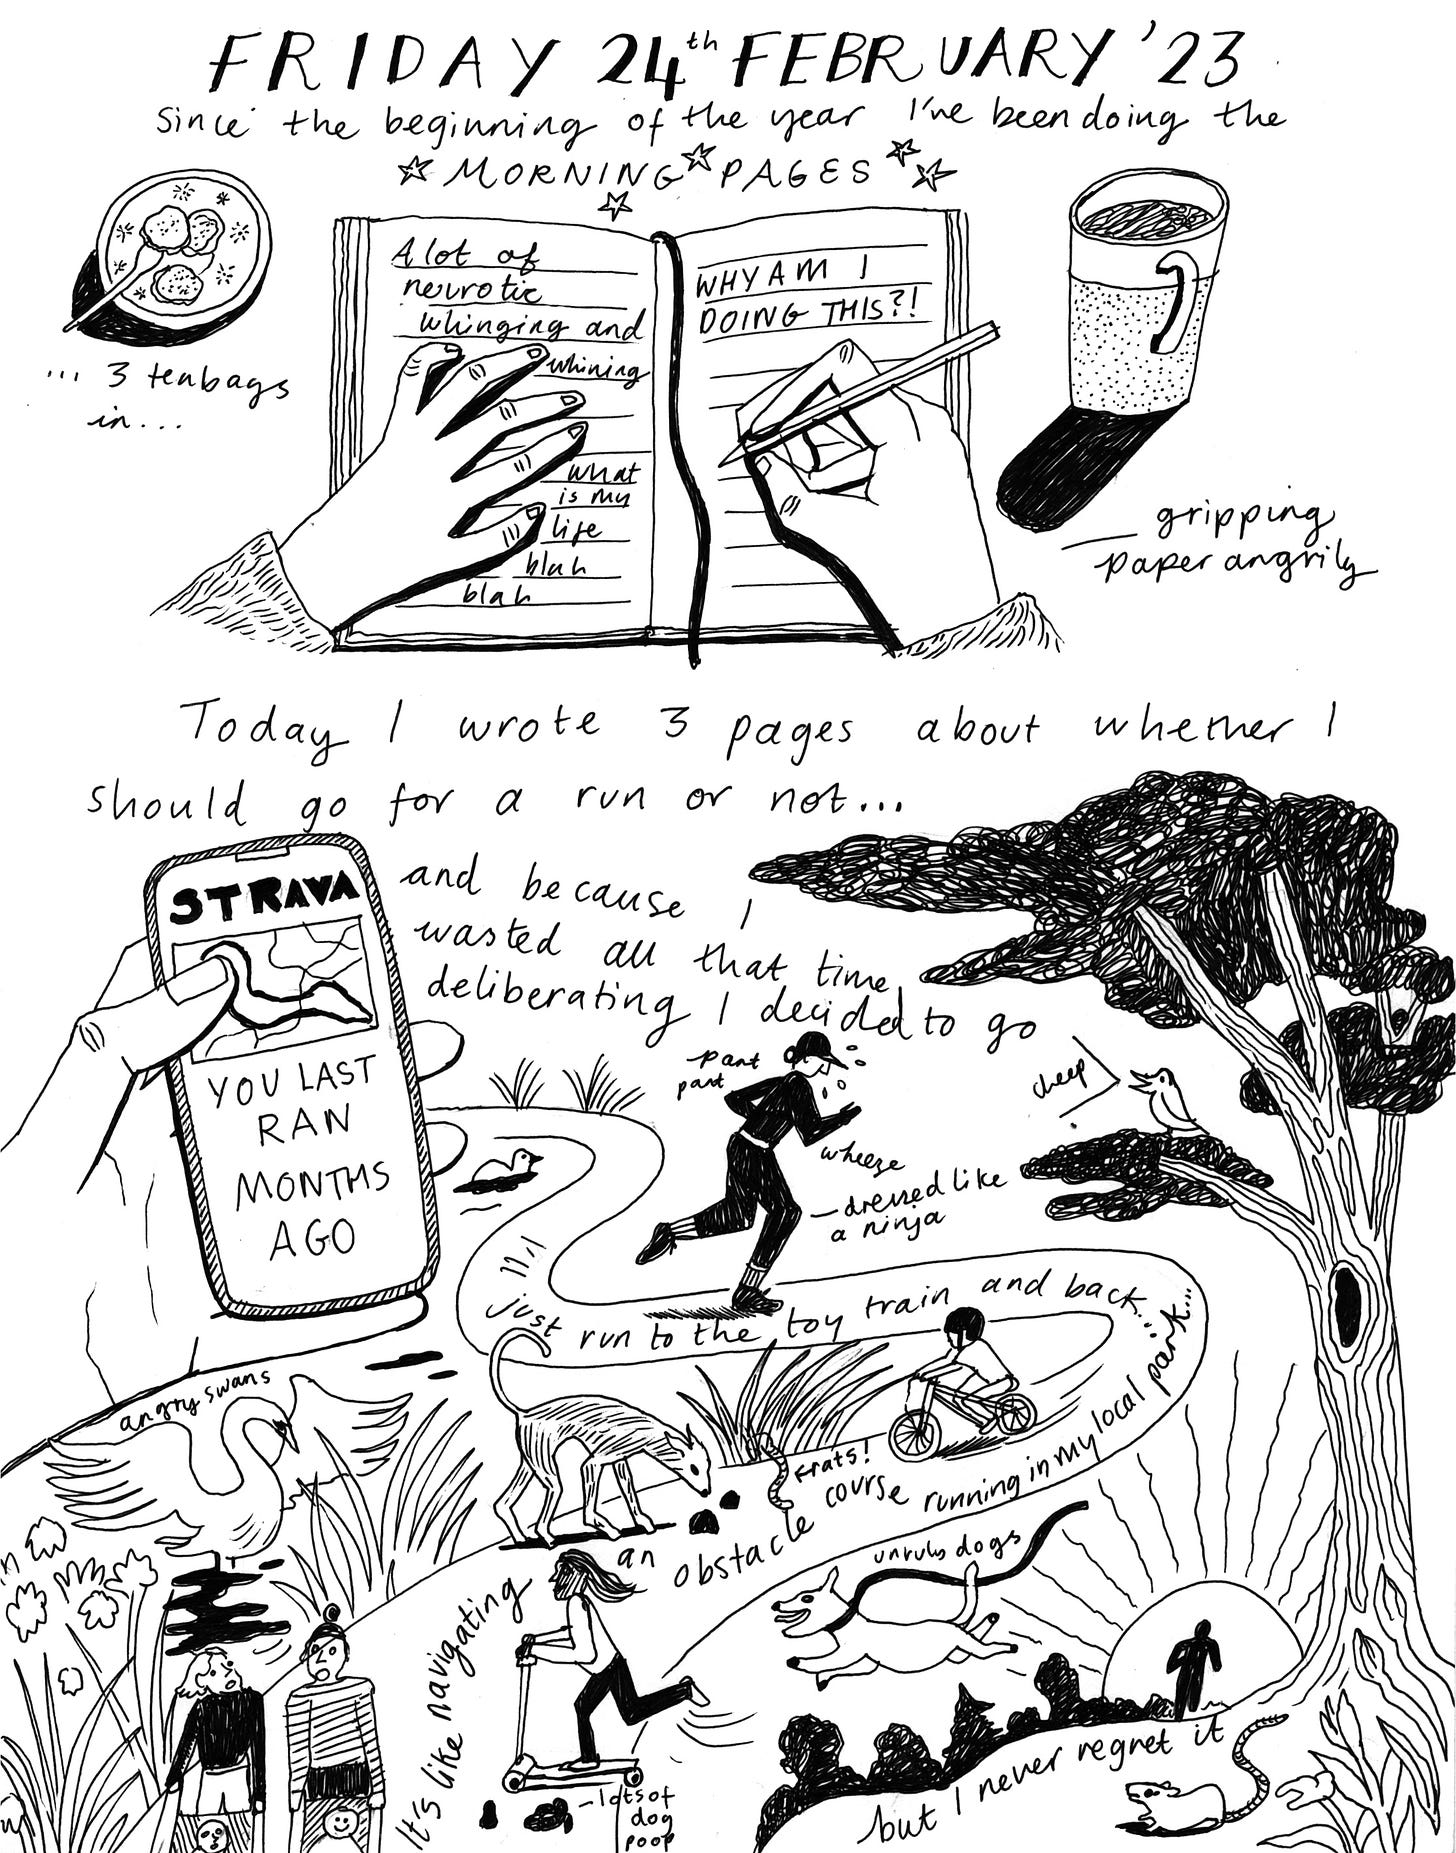 FRIDAY 24th FEBRUARY '23
Since the beginning of the year I've been doing the
MORNING PAGES
A lot of
neurotic
whinging and
whining
what
is my
life
blah
blah
WHY AM I
DOING THIS?!
... 3 teabags
in...
gripping
paper angrily
Today I wrote 3 pages about whether I
should go for a run or not...
STRAVA
YOU LAST
RAN
MONTHS
AGO
and because I
wasted all that time
deliberating I decided to go
pant
pant
wheeze
dressed like
a ninja
cheep
just run to the toy train and back...
angry swans
rats!
It's like navigating an obstacle course running in my local park...
unruly dogs
lots of
dog
poop
but I never regret it